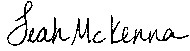 Leah McKenna